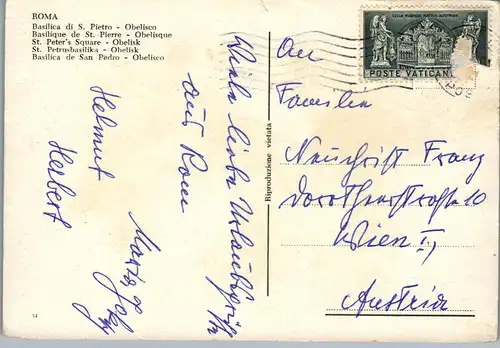 ROMA
Basilica di S. Pietro - Obelisco
Basilique de St. Pierre - Obelisque
St. Peter's Square - Obelisk
St. Petrusbasilika - Obelisk
Basilica de San Pedro - Obelisco
Viele liebe Urlaubsgrüße
aus Rom
Helmut
Herbert
Maria
Riproduzione vietata
POSTE VATICANE
An
Familie
Franz
Dorotheerstraße 10
Wien I,
Austria